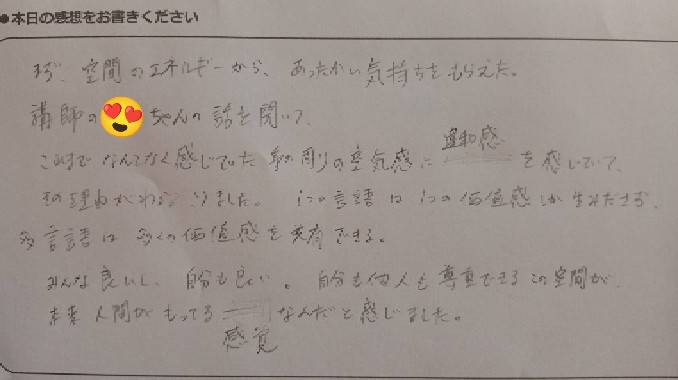 ●本日の感想をお書きください
まず、空間のエネルギーから、あったかい気持ちをもらえた。
講師の😍ちゃんの話を聞いて、
これまでなんてなく感じていた 身の周りの空気感に違和感を感じていて、
その理由がわかりました。1つの言語は1つの価値感しか生みださず、
多言語は多くの価値感を共有できる。
みんな良いし、自分も良い。自分も他人も尊重できるこの空間が、
未来 人間がもってる感覚なんだと感じました。